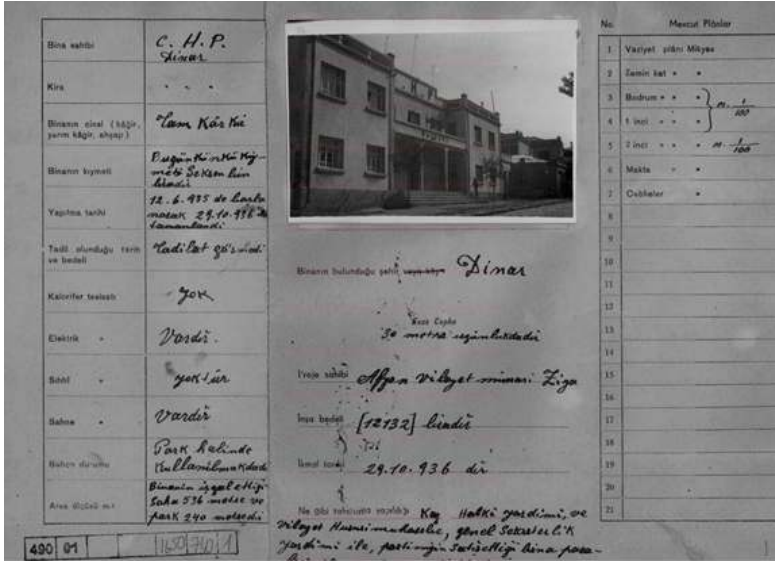 Bina sahibi C. H. P. Dinar
Kira " " "
Binanın cinsi (kâğir, yarım kâgir, ahşap) Tam Kârkir
Binanın kıymeti Bugünkü rekü kıymeti Seksen bin liradır
Yapılma tarihi 12.6.935 de başlanarak 29.10.936 da tamamlandı
Tadil olunduğu tarih ve bedeli Tadilat görmedi
Kalorifer tesisatı Yok
Elektrik " Vardır.
Sıhhî " yoktur
Sahne " Vardır
Bahçe durumu Park halinde kullanılmakdadır
Arsa ölçüsü m2 Binanın işgal ettiği Saha 536 metre ve park 240 metredir
490 01 1650 740 1
Binanın bulunduğu şehir veya köy Dinar
30 metre uzunlukdadır
Proje sahibi Afyon Vilayet mimarı Ziya
İnşa bedeli [12132] liradır
İkmal tarihi 29.10.936 dır
Ne gibi tahsisatla yapıldığı Halkı yardımı, ve
Vilayet Hususi muhasebe, genel Sekreterlik
yardımı ile, partimizin Satışettiği bina para-
No. Mevcut Plânlar
1 Vaziyet plânı Mikyas
2 Zemin kat " "
3 Bodrum " "
4 1 inci " " " 1/100
5 2 inci " " 1/100
6 Makta " "
7 Cebheler "
8
9
10
11
12
13
14
15
16
17
18
19
20
21